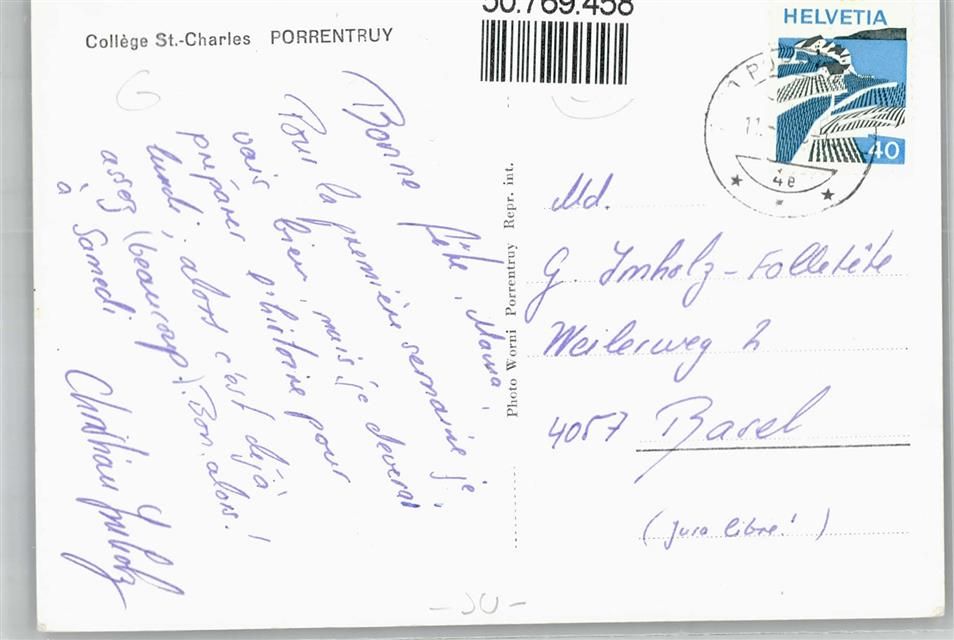 Collège St.-Charles PORRENTRUY
50.769.458
HELVETIA
40
4e
Bonne fête, Mama!
Pour la première semaine je
vais bien, mais je deverai
préparer l'histoire pour
lundi, alors c'est déjà
assez (beaucoup). Bon, alors!
à Samedi!
Christian Imholz
Photo Worni Porrentruy Repr. int.
Md.
G. Imholz-Folletête
Weilerweg 2
4057 Basel
(Jura libre!)
- JU -